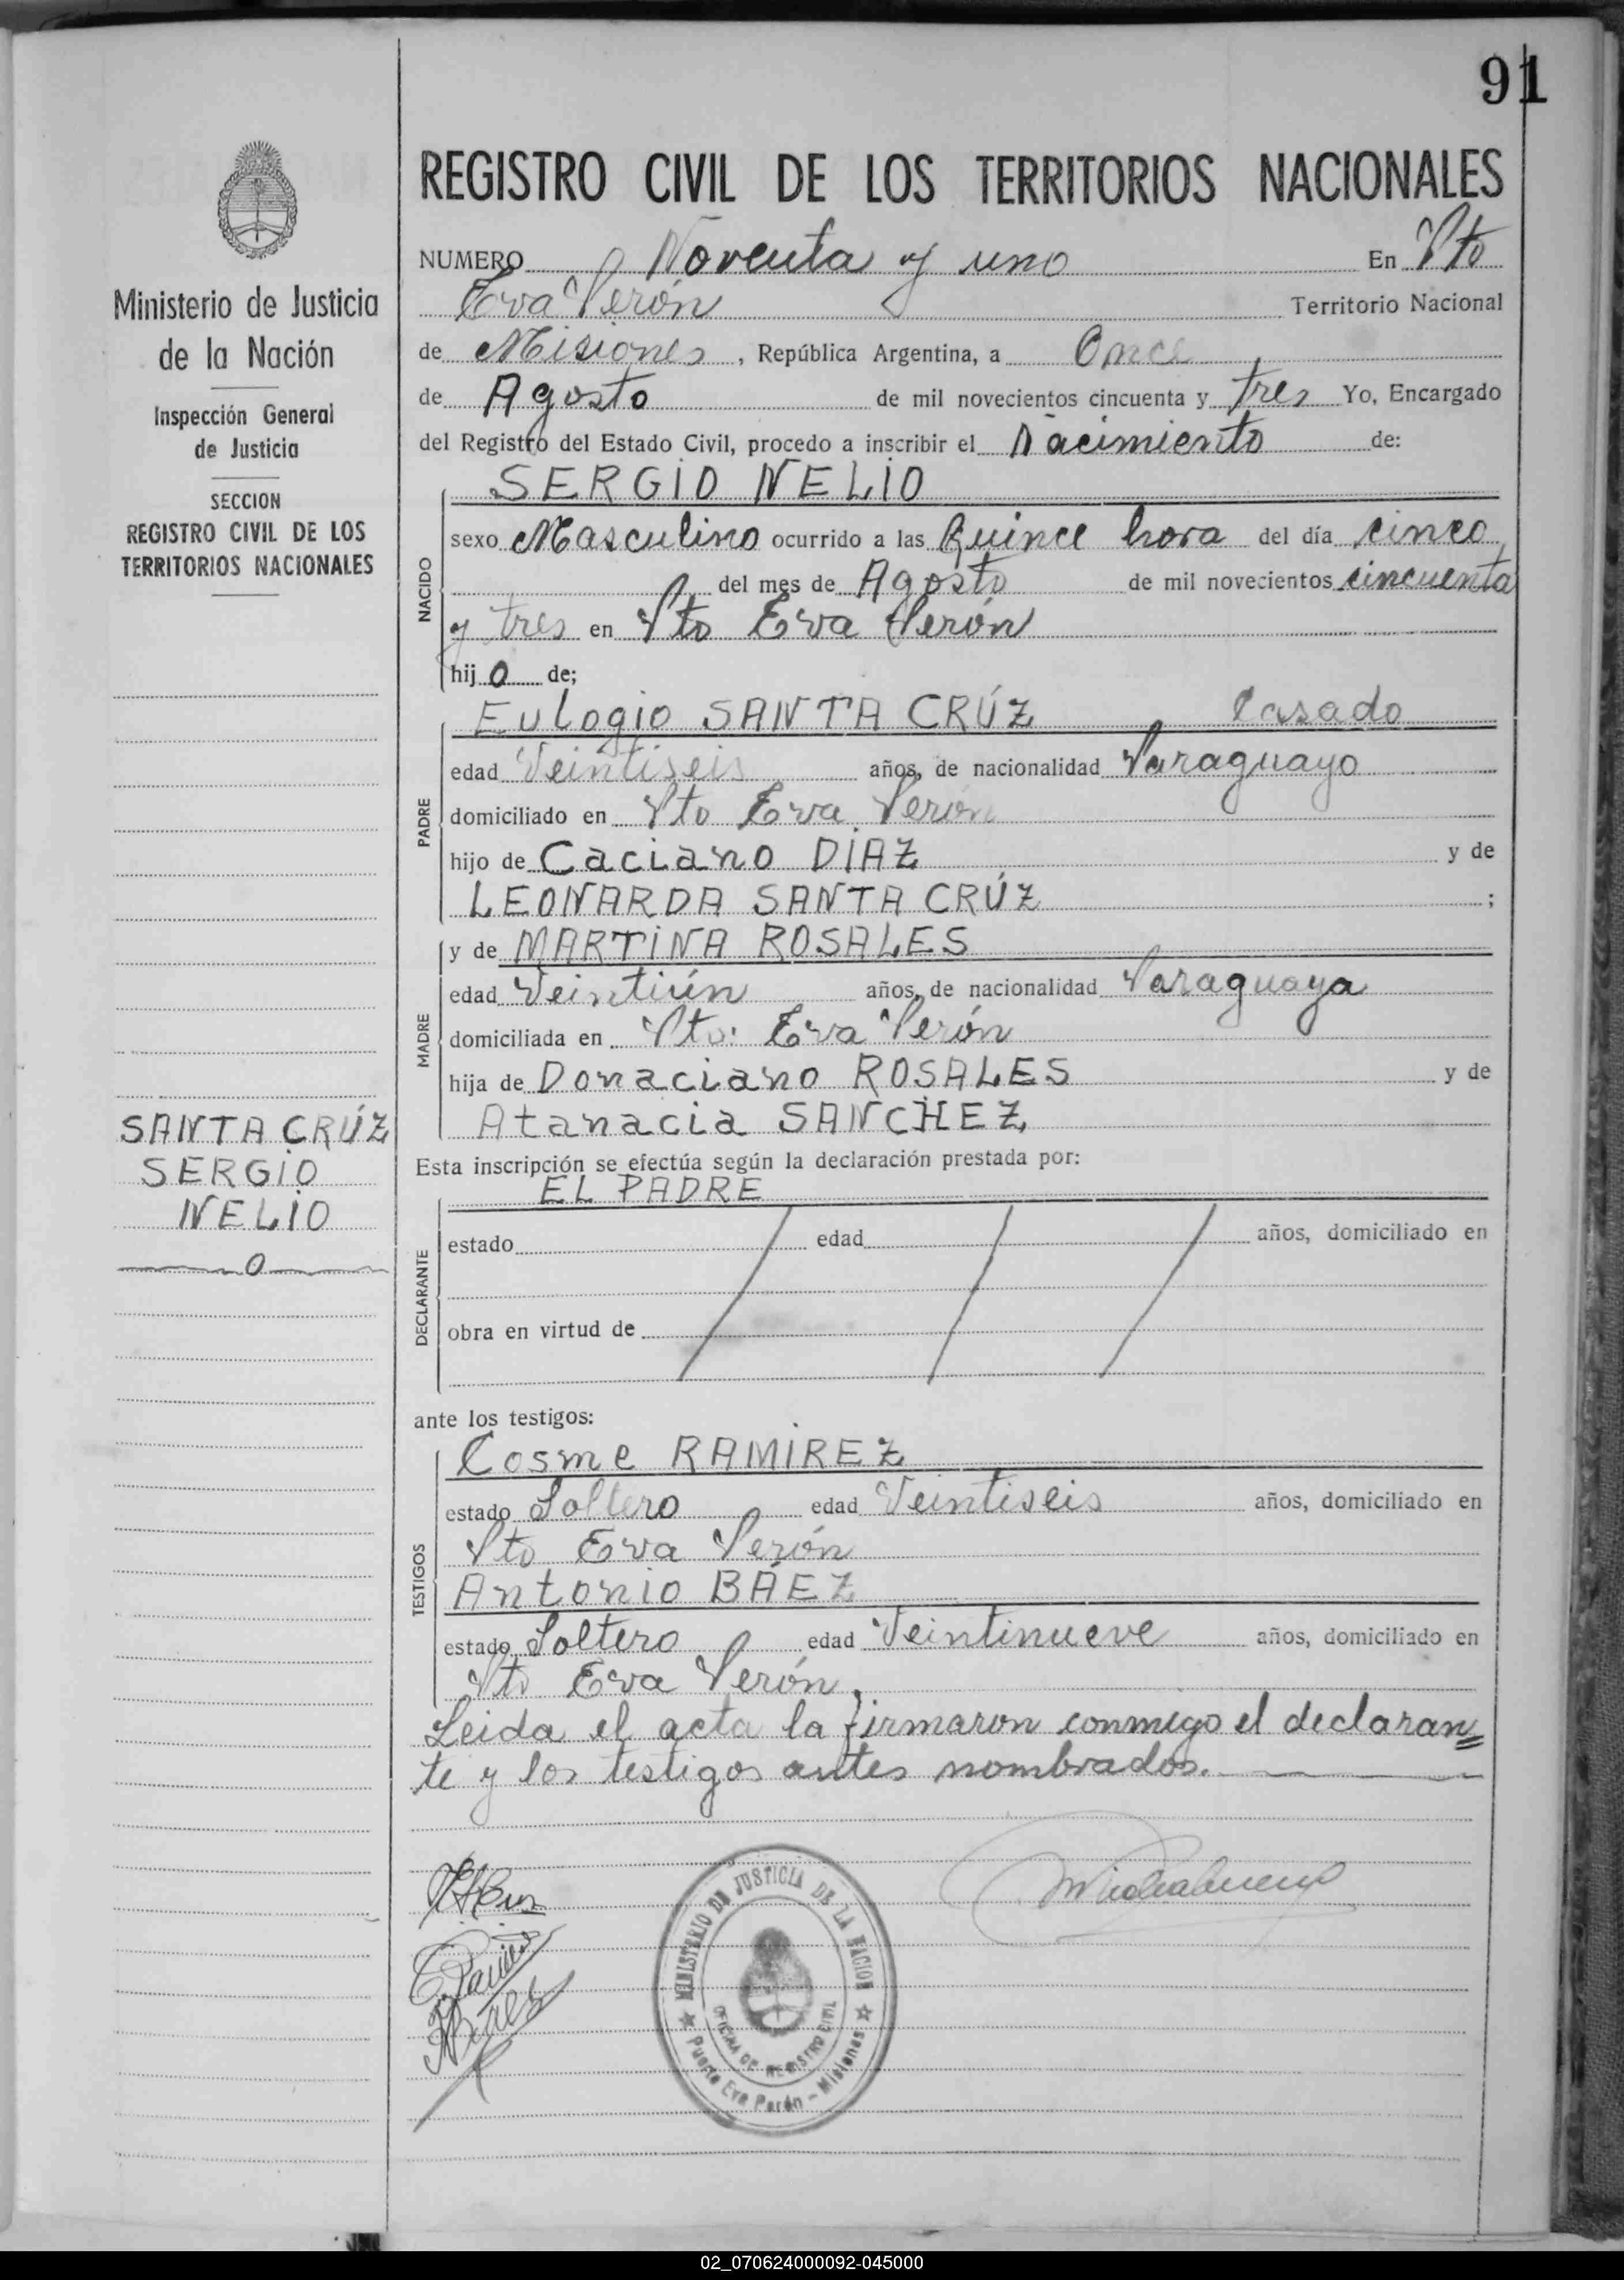 91
REGISTRO CIVIL DE LOS TERRITORIOS NACIONALES
NUMERO Noventa y uno En Pto
Eva Perón Territorio Nacional
de Misiones, República Argentina, a Once
de Agosto de mil novecientos cincuenta y tres Yo, Encargado
del Registro del Estado Civil, procedo a inscribir el Nacimiento de:
SERGIO NELIO
NACIDO
sexo Masculino ocurrido a las Quince hora del día cinco
del mes de Agosto de mil novecientos cincuenta
y tres en Pto Eva Perón
hijo de;
Eulogio SANTA CRÚZ Casado
PADRE
edad Veintiseis años, de nacionalidad Paraguayo
domiciliado en Pto Eva Perón
hijo de Caciano DIAZ y de
LEONARDA SANTA CRÚZ ;
y de MARTINA ROSALES
MADRE
edad Veintiún años, de nacionalidad Paraguaya
domiciliada en Pto: Eva Perón
hija de Donaciano ROSALES y de
Atanacia SANCHEZ
Esta inscripción se efectúa según la declaración prestada por:
EL PADRE
DECLARANTE
estado edad años, domiciliado en
obra en virtud de
ante los testigos:
Cosme RAMIREZ
TESTIGOS
estado Soltero edad Veintiseis años, domiciliado en
Pto Eva Perón
Antonio BÁEZ
estado Soltero edad Veintinueve años, domiciliado en
Pto Eva Perón.
Leida el acta la firmaron conmigo el declaran=
te y los testigos antes nombrados.
MINISTERIO DE JUSTICIA DE LA NACION
OFICINA DE REGISTRO CIVIL
Puerto Eva Perón - Misiones
Ministerio de Justicia
de la Nación
Inspección General
de Justicia
SECCION
REGISTRO CIVIL DE LOS
TERRITORIOS NACIONALES
SANTA CRÚZ
SERGIO
NELIO
02_070624000092-045000